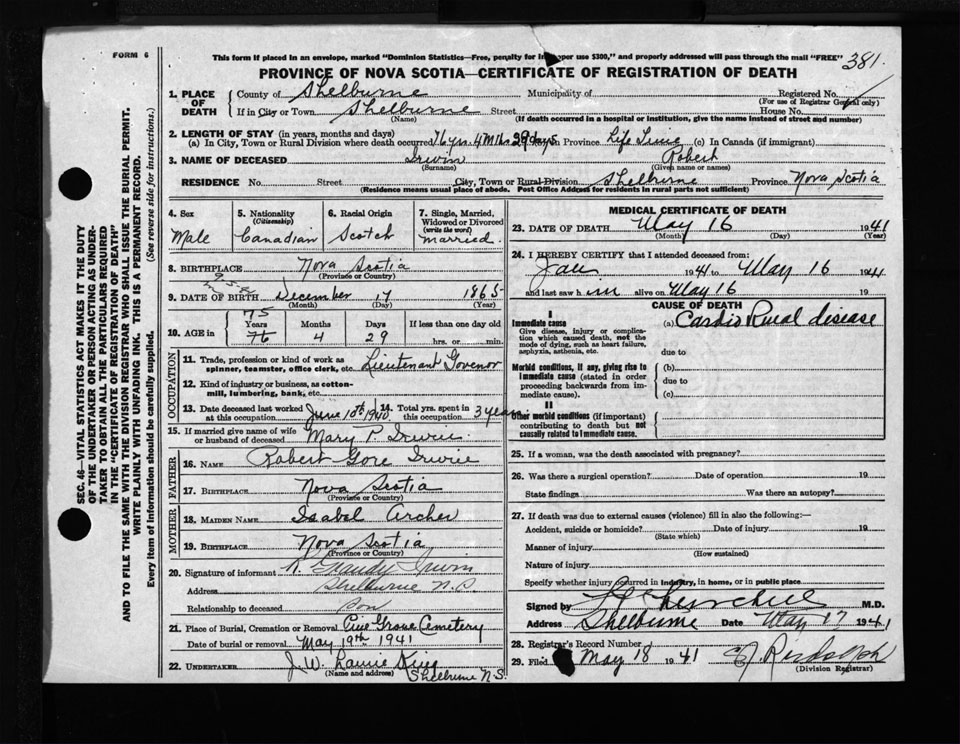 FORM 6
This form if placed in an envelope, marked "Dominion Statistics—Free, penalty for improper use $300," and properly addressed will pass through the mail "FREE"
381.
PROVINCE OF NOVA SCOTIA—CERTIFICATE OF REGISTRATION OF DEATH
1. PLACE OF DEATH
County of Shelburne Municipality of Registered No.
(For use of Registrar General only)
If in City or Town Shelburne Street House No.
(Name) (If death occurred in a hospital or institution, give the name instead of street and number)
2. LENGTH OF STAY (in years, months and days)
(a) In City, Town or Rural Division where death occurred 76 yrs. 4 Mths 29 days In Province Life Time (c) In Canada (if immigrant)
3. NAME OF DECEASED Irwin Robert
(Surname) (Given name or names)
RESIDENCE No. Street City, Town or Rural Division Shelburne Province Nova Scotia
(Residence means usual place of abode. Post Office Address for residents in rural parts not sufficient)
4. Sex
Male
5. Nationality
(Citizenship)
Canadian
6. Racial Origin
Scotch
7. Single, Married, Widowed or Divorced
(write the word)
Married.
8. BIRTHPLACE Nova Scotia
(Province or Country)
9. DATE OF BIRTH December 17 1865
(Month) (Day) (Year)
10. AGE in
75
Years Months Days If less than one day old
76 4 29 hrs. or min.
OCCUPATION
11. Trade, profession or kind of work as
spinner, teamster, office clerk, etc. Lieutenant Govenor
12. Kind of industry or business, as cotton-
mill, lumbering, bank, etc.
13. Date deceased last worked
at this occupation June 10th 1940
14. Total yrs. spent in
this occupation 3 years
15. If married give name of wife
or husband of deceased Mary P. Irwin
FATHER
16. NAME Robert Gore Irwin
17. BIRTHPLACE Nova Scotia
(Province or Country)
MOTHER
18. MAIDEN NAME Isabel Archer
19. BIRTHPLACE Nova Scotia
(Province or Country)
20. Signature of informant Irwin
Address Shelburne N.S.
Relationship to deceased son
21. Place of Burial, Cremation or Removal Pine Grove Cemetery
Date of burial or removal May 19th 1941
22. UNDERTAKER J. W. King
(Name and address) Shelburne N.S.
MEDICAL CERTIFICATE OF DEATH
23. DATE OF DEATH May 16 1941
(Month) (Day) (Year)
24. I HEREBY CERTIFY that I attended deceased from:
Jan 1941 to May 16 1941
and last saw him alive on May 16 19
CAUSE OF DEATH
I
Immediate cause
Give disease, injury or complication which caused death, not the mode of dying, such as heart failure, asphyxia, asthenia, etc.
(a) Cardio disease
due to
Morbid conditions, if any, giving rise to immediate cause (stated in order proceeding backwards from immediate cause).
(b)
due to
(c)
II
Other morbid conditions (if important) contributing to death but not causally related to immediate cause.
25. If a woman, was the death associated with pregnancy?
26. Was there a surgical operation? Date of operation 19
State findings Was there an autopsy?
27. If death was due to external causes (violence) fill in also the following:—
Accident, suicide or homicide? Date of injury 19
(State which)
Manner of injury
(How sustained)
Nature of injury
Specify whether injury occurred in industry, in home, or in public place
Signed by Churchill M.D.
Address Shelburne Date May 17 1941
28. Registrar's Record Number
29. Filed May 18 1941
(Division Registrar)
SEC. 46—VITAL STATISTICS ACT MAKES IT THE DUTY
OF THE UNDERTAKER OR PERSON ACTING AS UNDER-
TAKER TO OBTAIN ALL THE PARTICULARS REQUIRED
IN THE "CERTIFICATE OF REGISTRATION OF DEATH"
AND TO FILE THE SAME WITH THE DIVISION REGISTRAR WHO SHALL ISSUE THE BURIAL PERMIT.
WRITE PLAINLY WITH UNFADING INK. THIS IS A PERMANENT RECORD.
Every item of information should be carefully supplied. (See reverse side for instructions.)